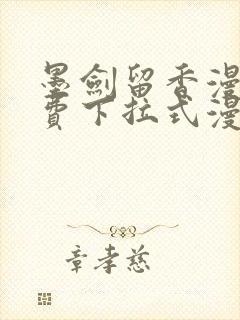 墨劍留香漫
費下拉式漫
章孝慈